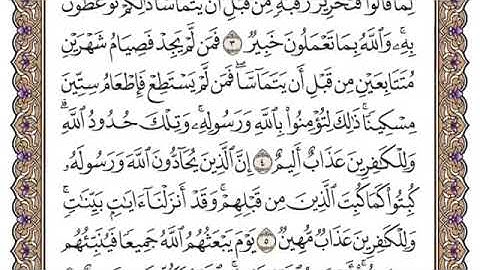 لِمَا قَالُوا۟ فَتَحْرِيرُ رَقَبَةٍ مِّن قَبْلِ أَن يَتَمَآسَّا ذَٰلِكُمْ تُوعَظُونَ
بِهِۦ وَٱللَّهُ بِمَا تَعْمَلُونَ خَبِيرٌ ٣ فَمَن لَّمْ يَجِدْ فَصِيَامُ شَهْرَيْنِ
مُتَتَابِعَيْنِ مِن قَبْلِ أَن يَتَمَآسَّا فَمَن لَّمْ يَسْتَطِعْ فَإِطْعَامُ سِتِّينَ
مِسْكِينًا ذَٰلِكَ لِتُؤْمِنُوا۟ بِٱللَّهِ وَرَسُولِهِۦ وَتِلْكَ حُدُودُ ٱللَّهِ
وَلِلْكَٰفِرِينَ عَذَابٌ أَلِيمٌ ٤ إِنَّ ٱلَّذِينَ يُحَآدُّونَ ٱللَّهَ وَرَسُولَهُۥ
كُبِتُوا۟ كَمَا كُبِتَ ٱلَّذِينَ مِن قَبْلِهِمْ وَقَدْ أَنزَلْنَآ ءَايَٰتٍۭ بَيِّنَٰتٍ
وَلِلْكَٰفِرِينَ عَذَابٌ مُّهِينٌ ٥ يَوْمَ يَبْعَثُهُمُ ٱللَّهُ جَمِيعًا فَيُنَبِّئُهُم